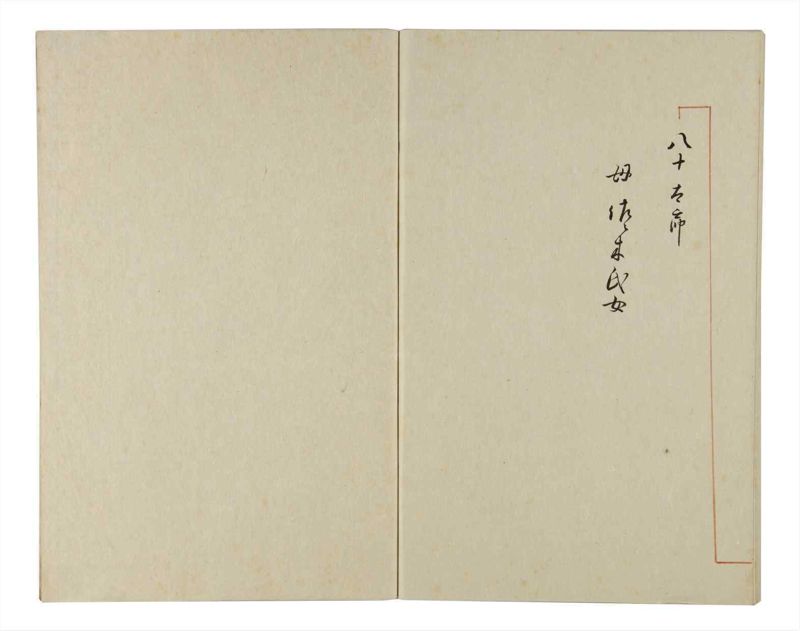 八十吉郎
母佐々木氏女